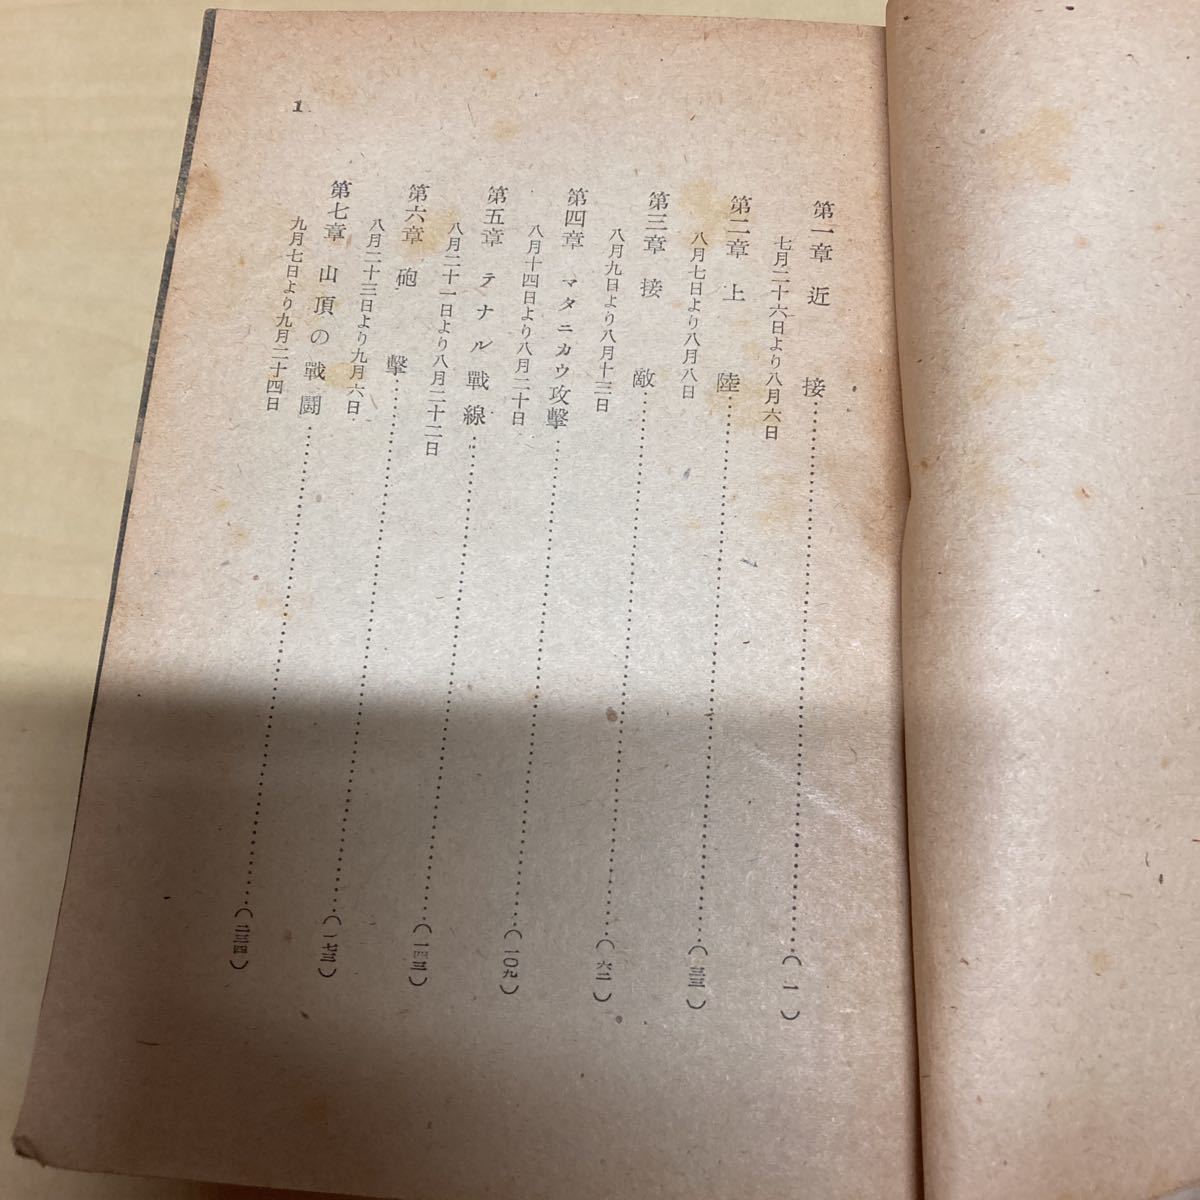 第一章 近接……(一)
七月二十六日より八月六日
第二章 上陸……(三三)
八月七日より八月八日
第三章 接敵……(六二)
八月九日より八月十三日
第四章 マタニカウ攻擊……(一〇九)
八月十四日より八月二十日
第五章 テナル戰線……(一四三)
八月二十一日より八月二十二日
第六章 砲擊……(一七三)
八月二十三日より九月六日
第七章 山頂の戰鬪……(二三四)
九月七日より九月二十四日
1